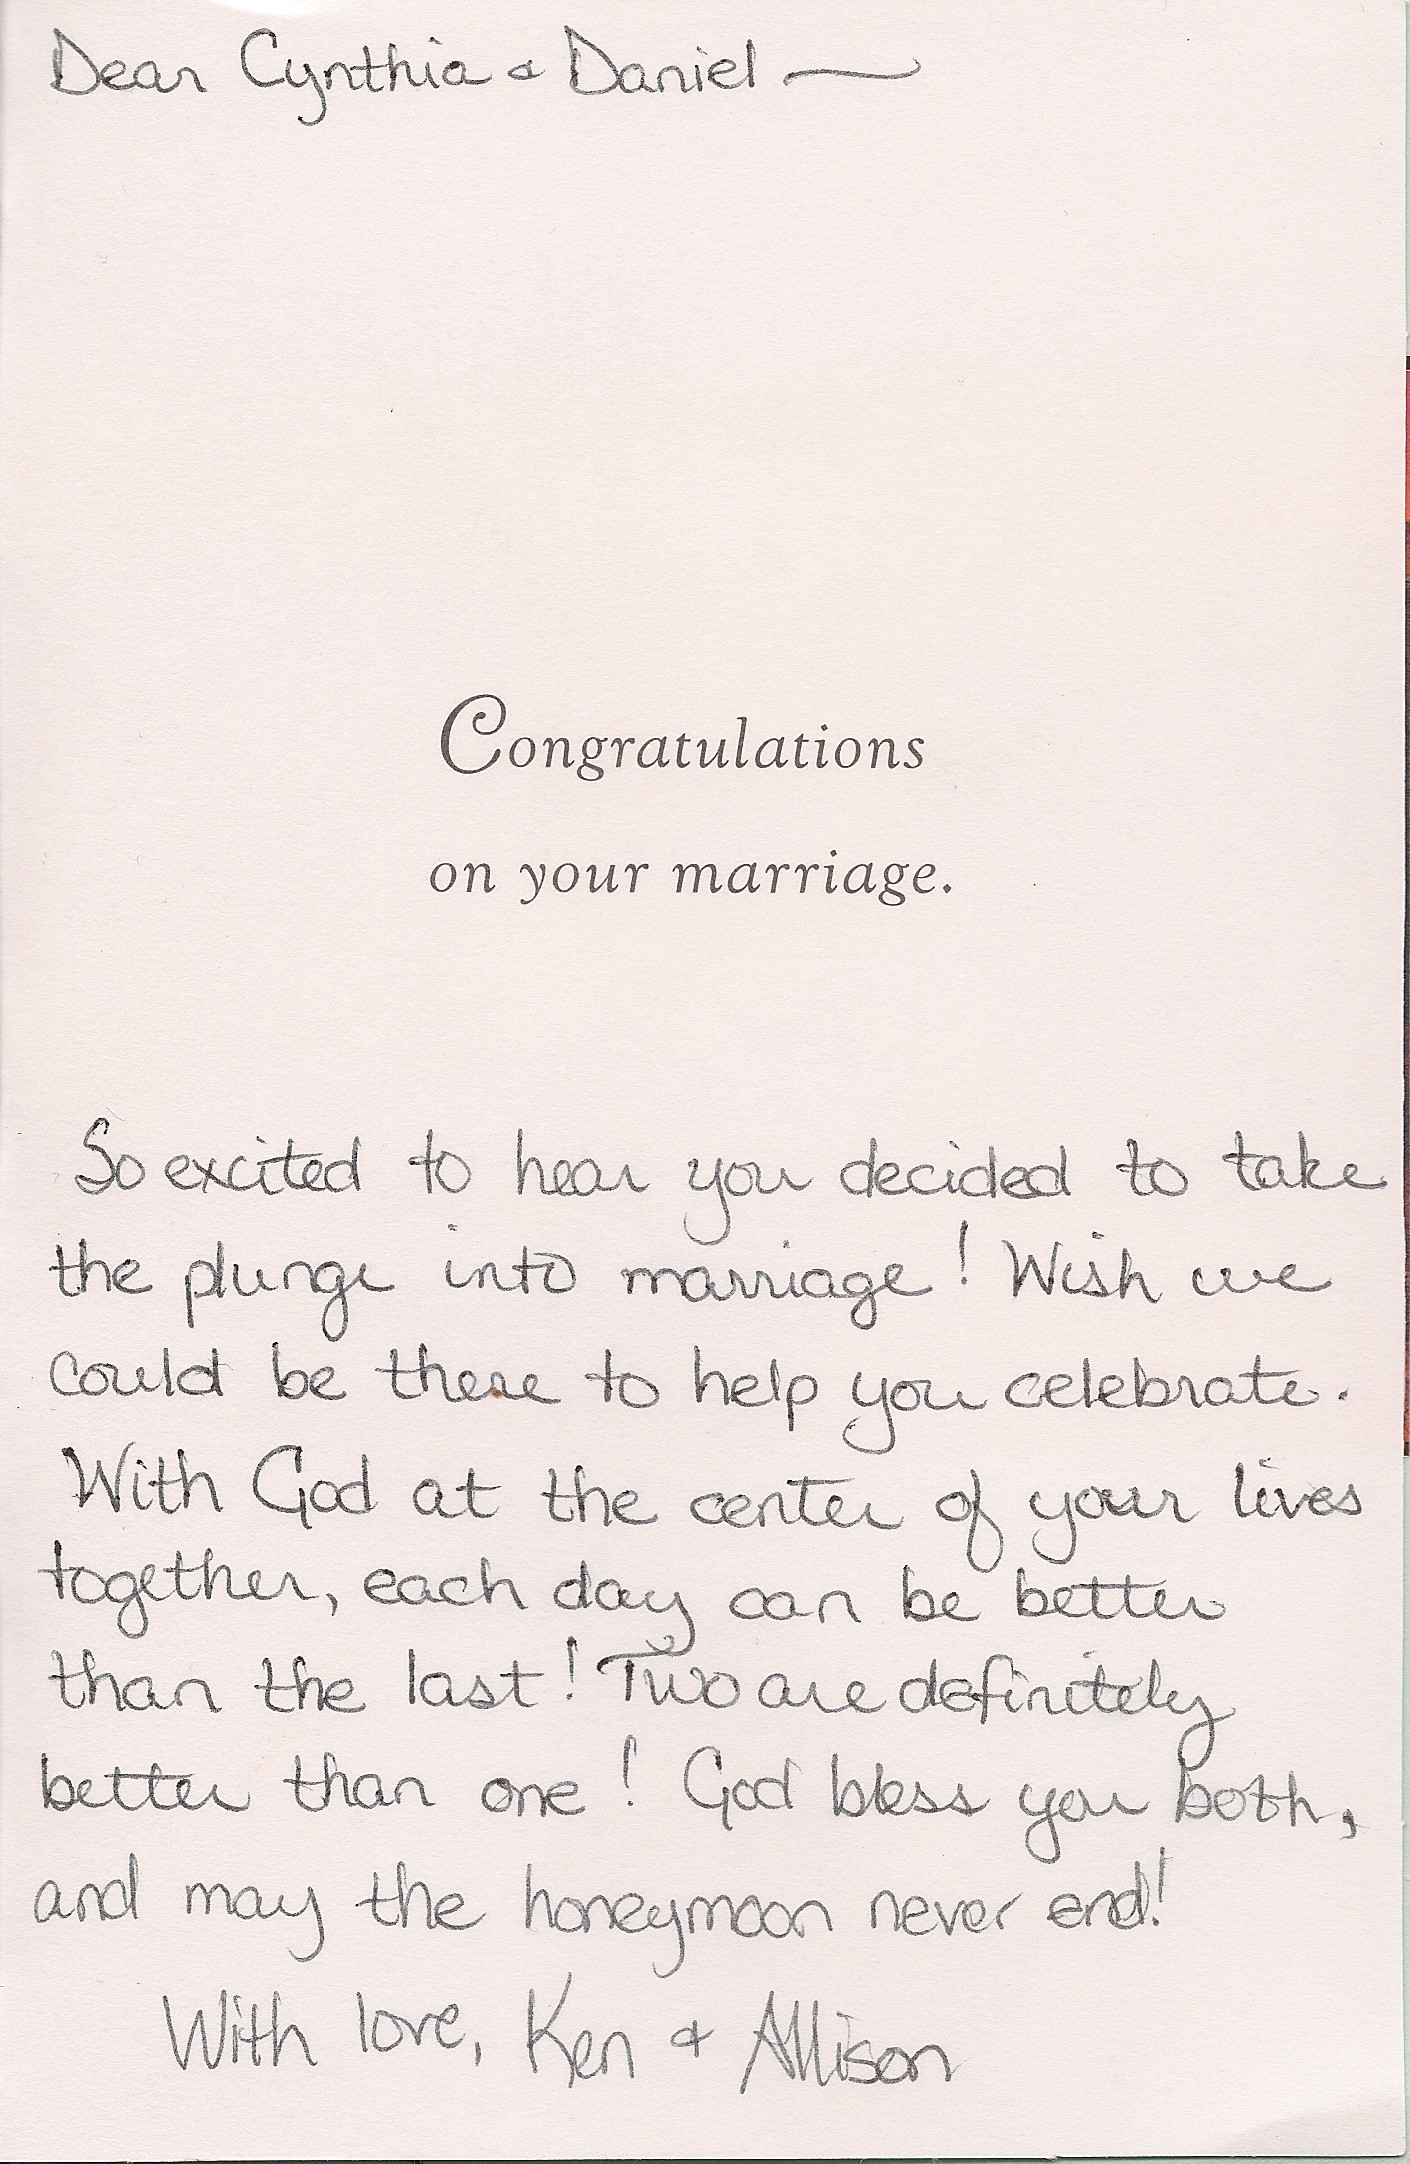 Dear Cynthia & Daniel —
Congratulations
on your marriage.
So excited to hear you decided to take
the plunge into marriage! Wish we
could be there to help you celebrate.
With God at the center of your lives
together, each day can be better
than the last! Two are definitely
better than one! God bless you both,
and may the honeymoon never end!
With love, Ken & Allison